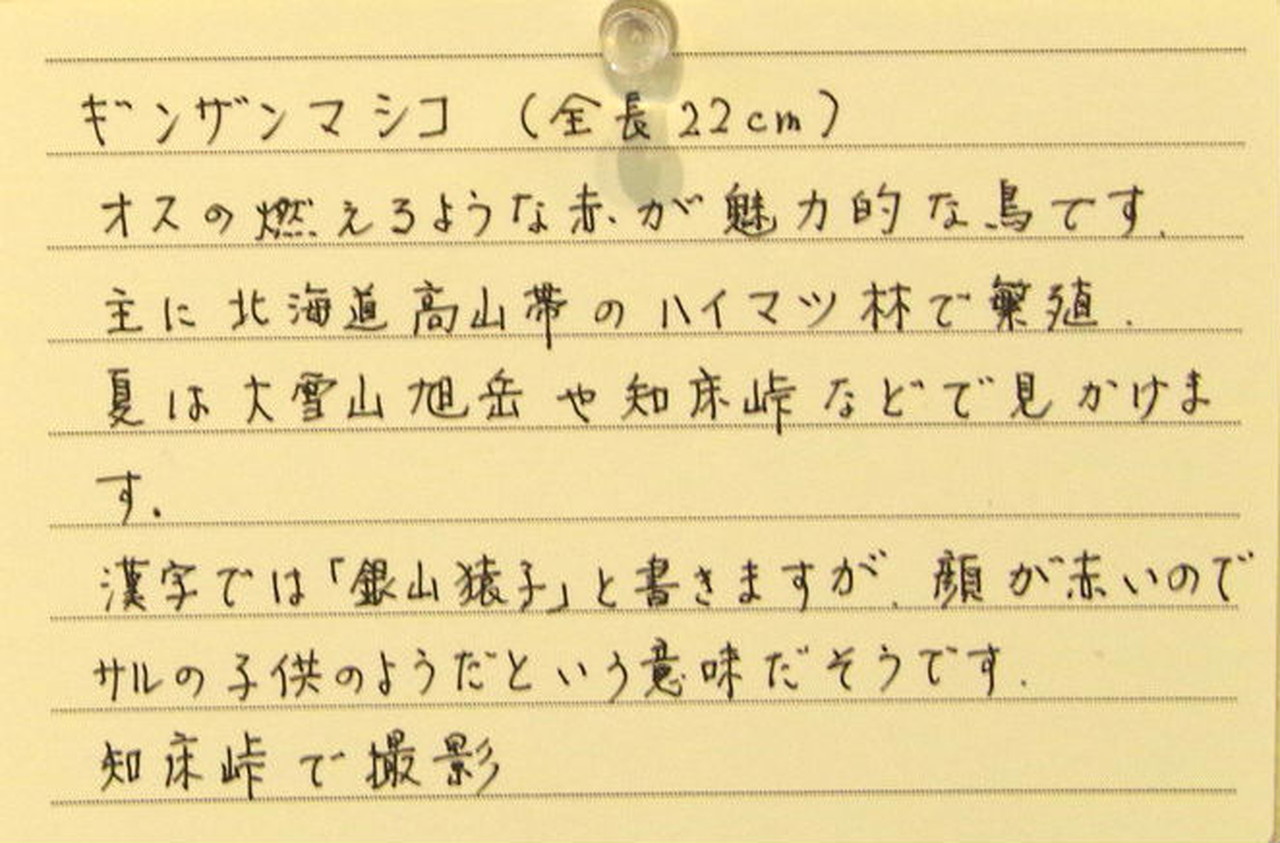 ギンザンマシコ （全長22cm）
オスの燃えるような赤が魅力的な鳥です.
主に北海道高山帯のハイマツ林で繁殖.
夏は大雪山旭岳や知床峠などで見かけま
す.
漢字では「銀山猿子」と書きますが、顔が赤いので
サルの子供のようだという意味だそうです.
知床峠で撮影